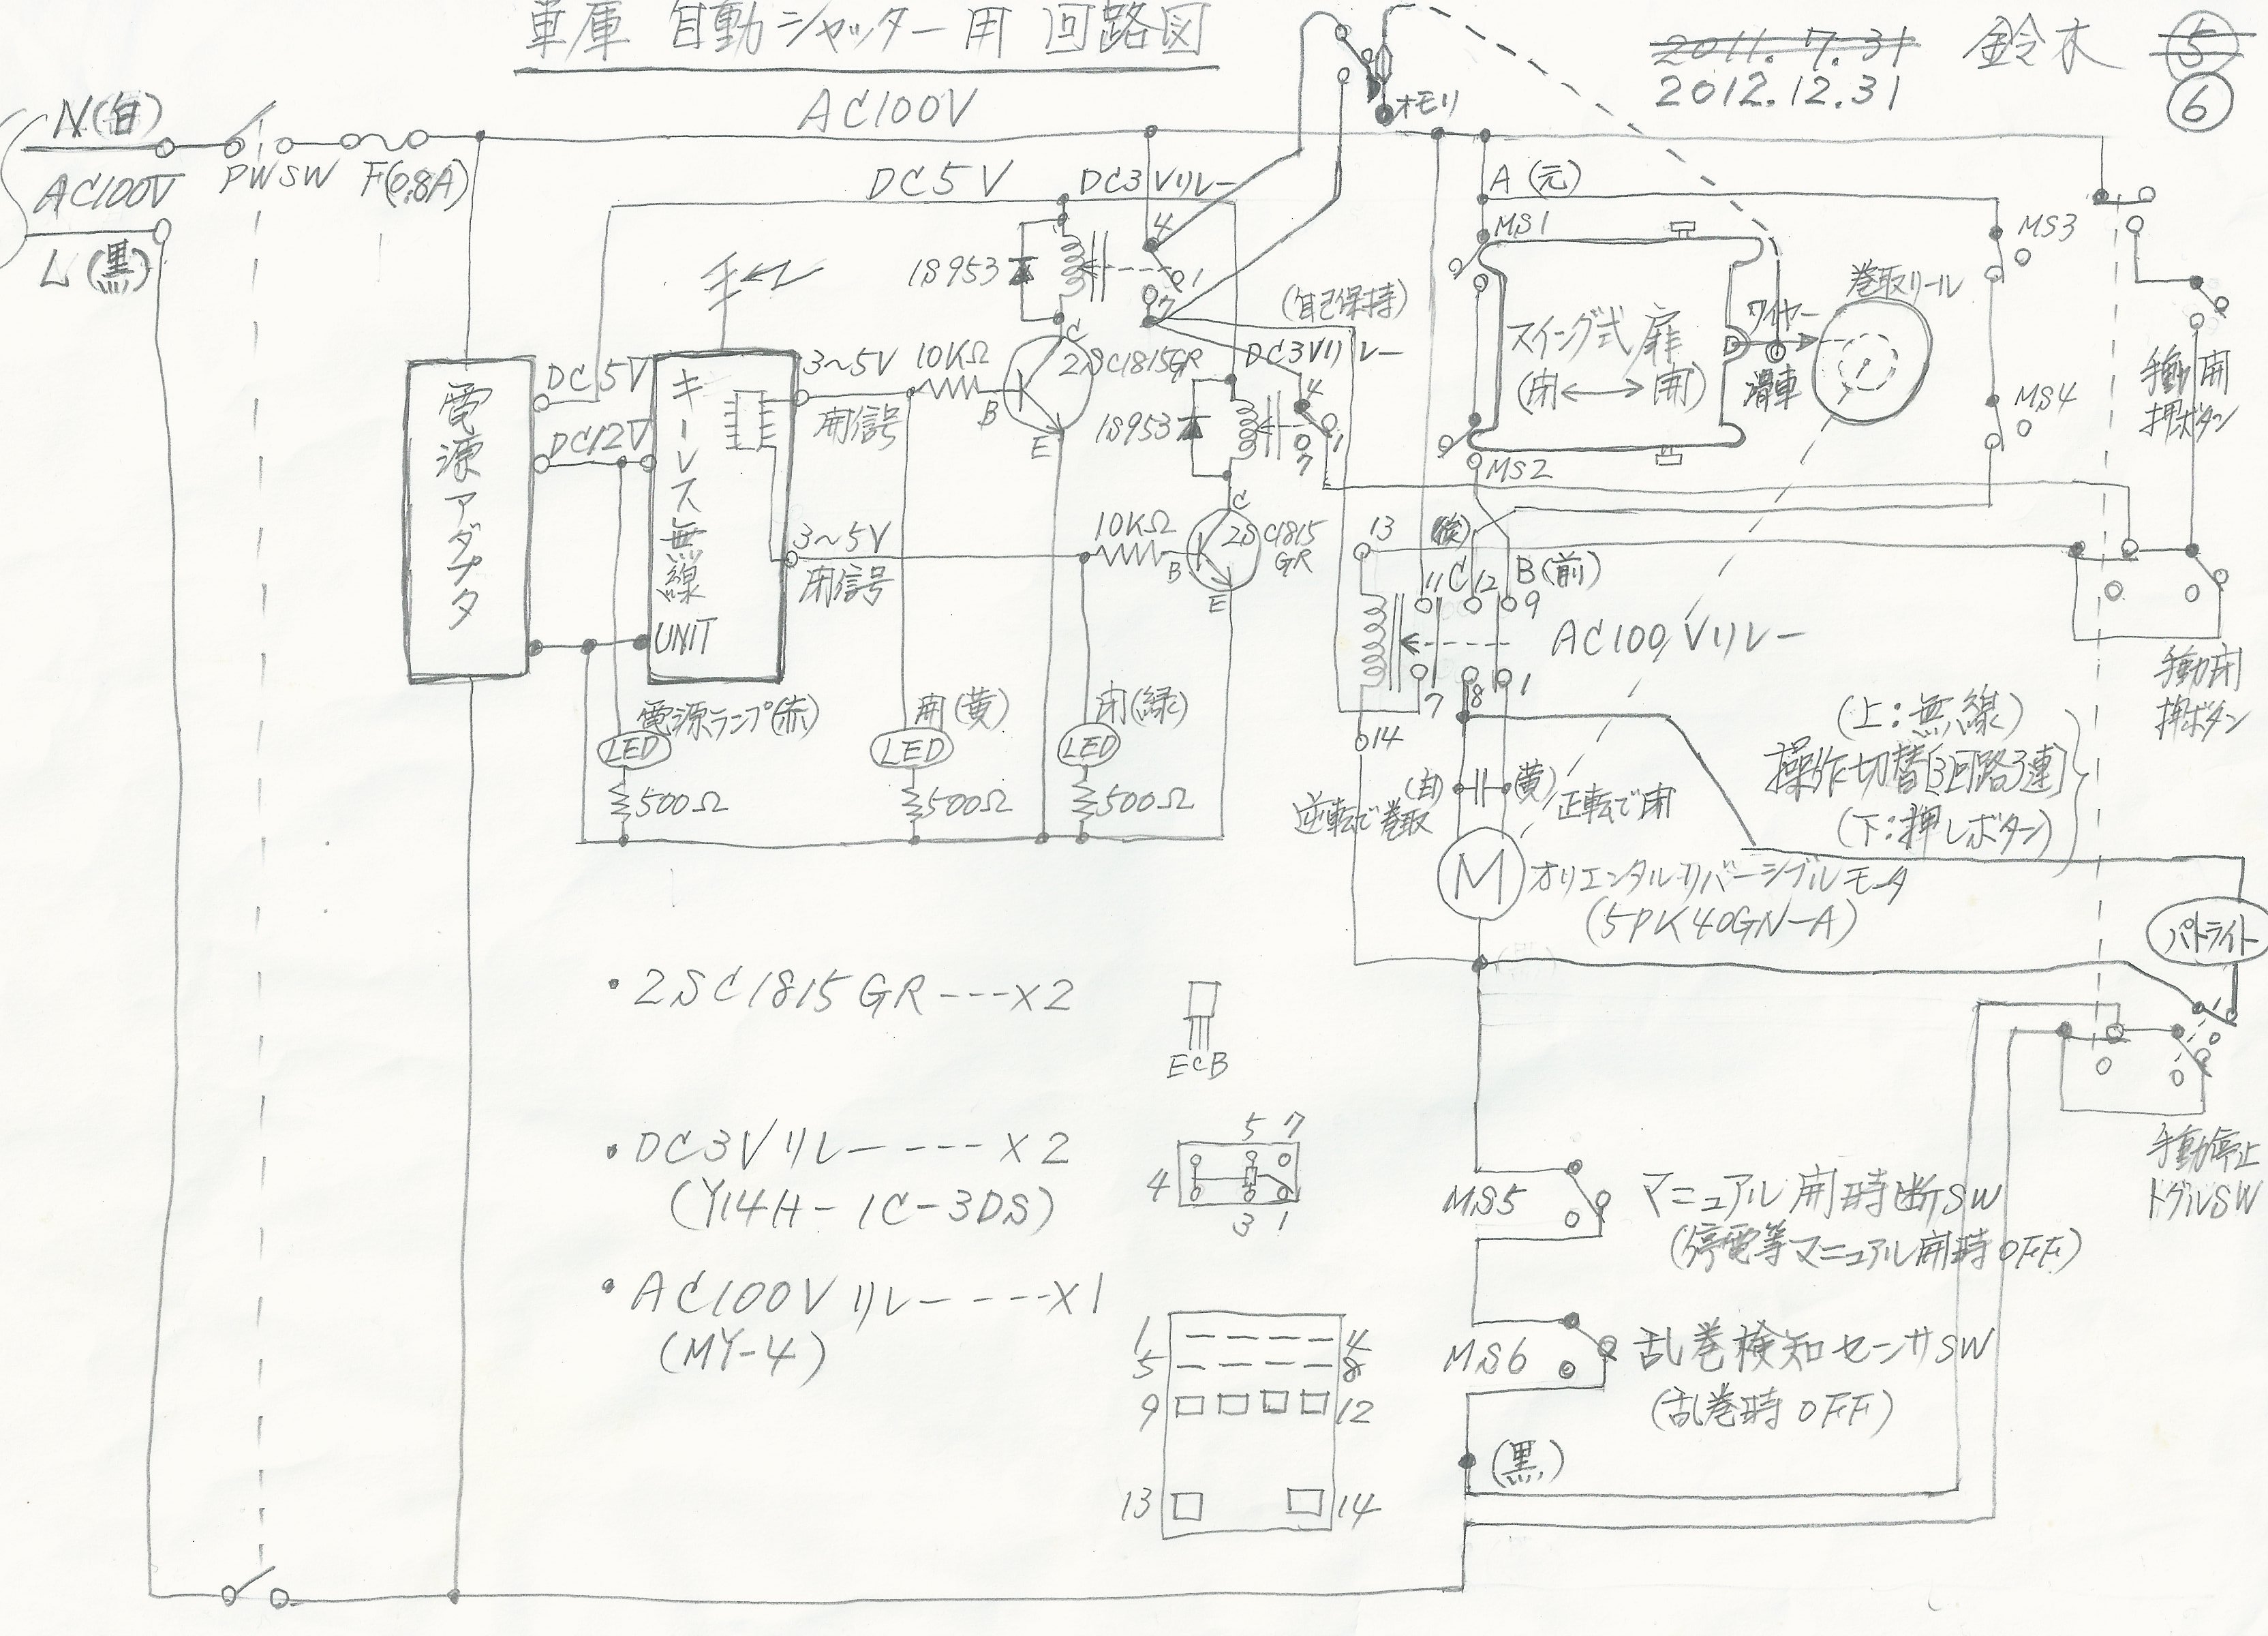 車庫 自動シャッター用 回路図
2011.7.31 鈴木 5
2012.12.31 6
オモリ
N(白)
AC100V
L(黒)
PWSW
F(0.8A)
AC100V
DC5V
DC3Vリレー
4
1
7
A(元)
MS1
MS3
1S953
(自己保持)
巻取リール
スイング式扉
(閉←→開)
ワイヤー
滑車
MS4
手動開
押ボタン
電源アダプタ
DC5V
DC12V
キーレス無線
UNIT
3~5V
開信号
10KΩ
B
C
E
2SC1815GR
DC3Vリレー
4
1
7
1S953
MS2
3~5V
閉信号
10KΩ
B
C
E
2SC1815
GR
13
(後)
11 C 12 B(前)
9
AC100Vリレー
7 8 1
14
手動閉
押ボタン
電源ランプ(赤)
LED
500Ω
開(黄)
LED
500Ω
閉(緑)
LED
500Ω
(上:無線)
操作切替[3回路3連]
(下:押しボタン)
(白)
(黄)
逆転で巻取
正転で閉
M
オリエンタルリバーシブルモータ
(5PK40GN-A)
パトライト
手動停止
トグルSW
・2SC1815GR---×2
ECB
・DC3Vリレー----×2
(Y14H-1C-3DS)
5 7
4
3 1
・AC100Vリレー----×1
(MY-4)
1 4
5 8
9 12
13 14
MS5
マニュアル開時断SW
(停電等マニュアル開時OFF)
MS6
乱巻検知センサSW
(乱巻時OFF)
(黒)